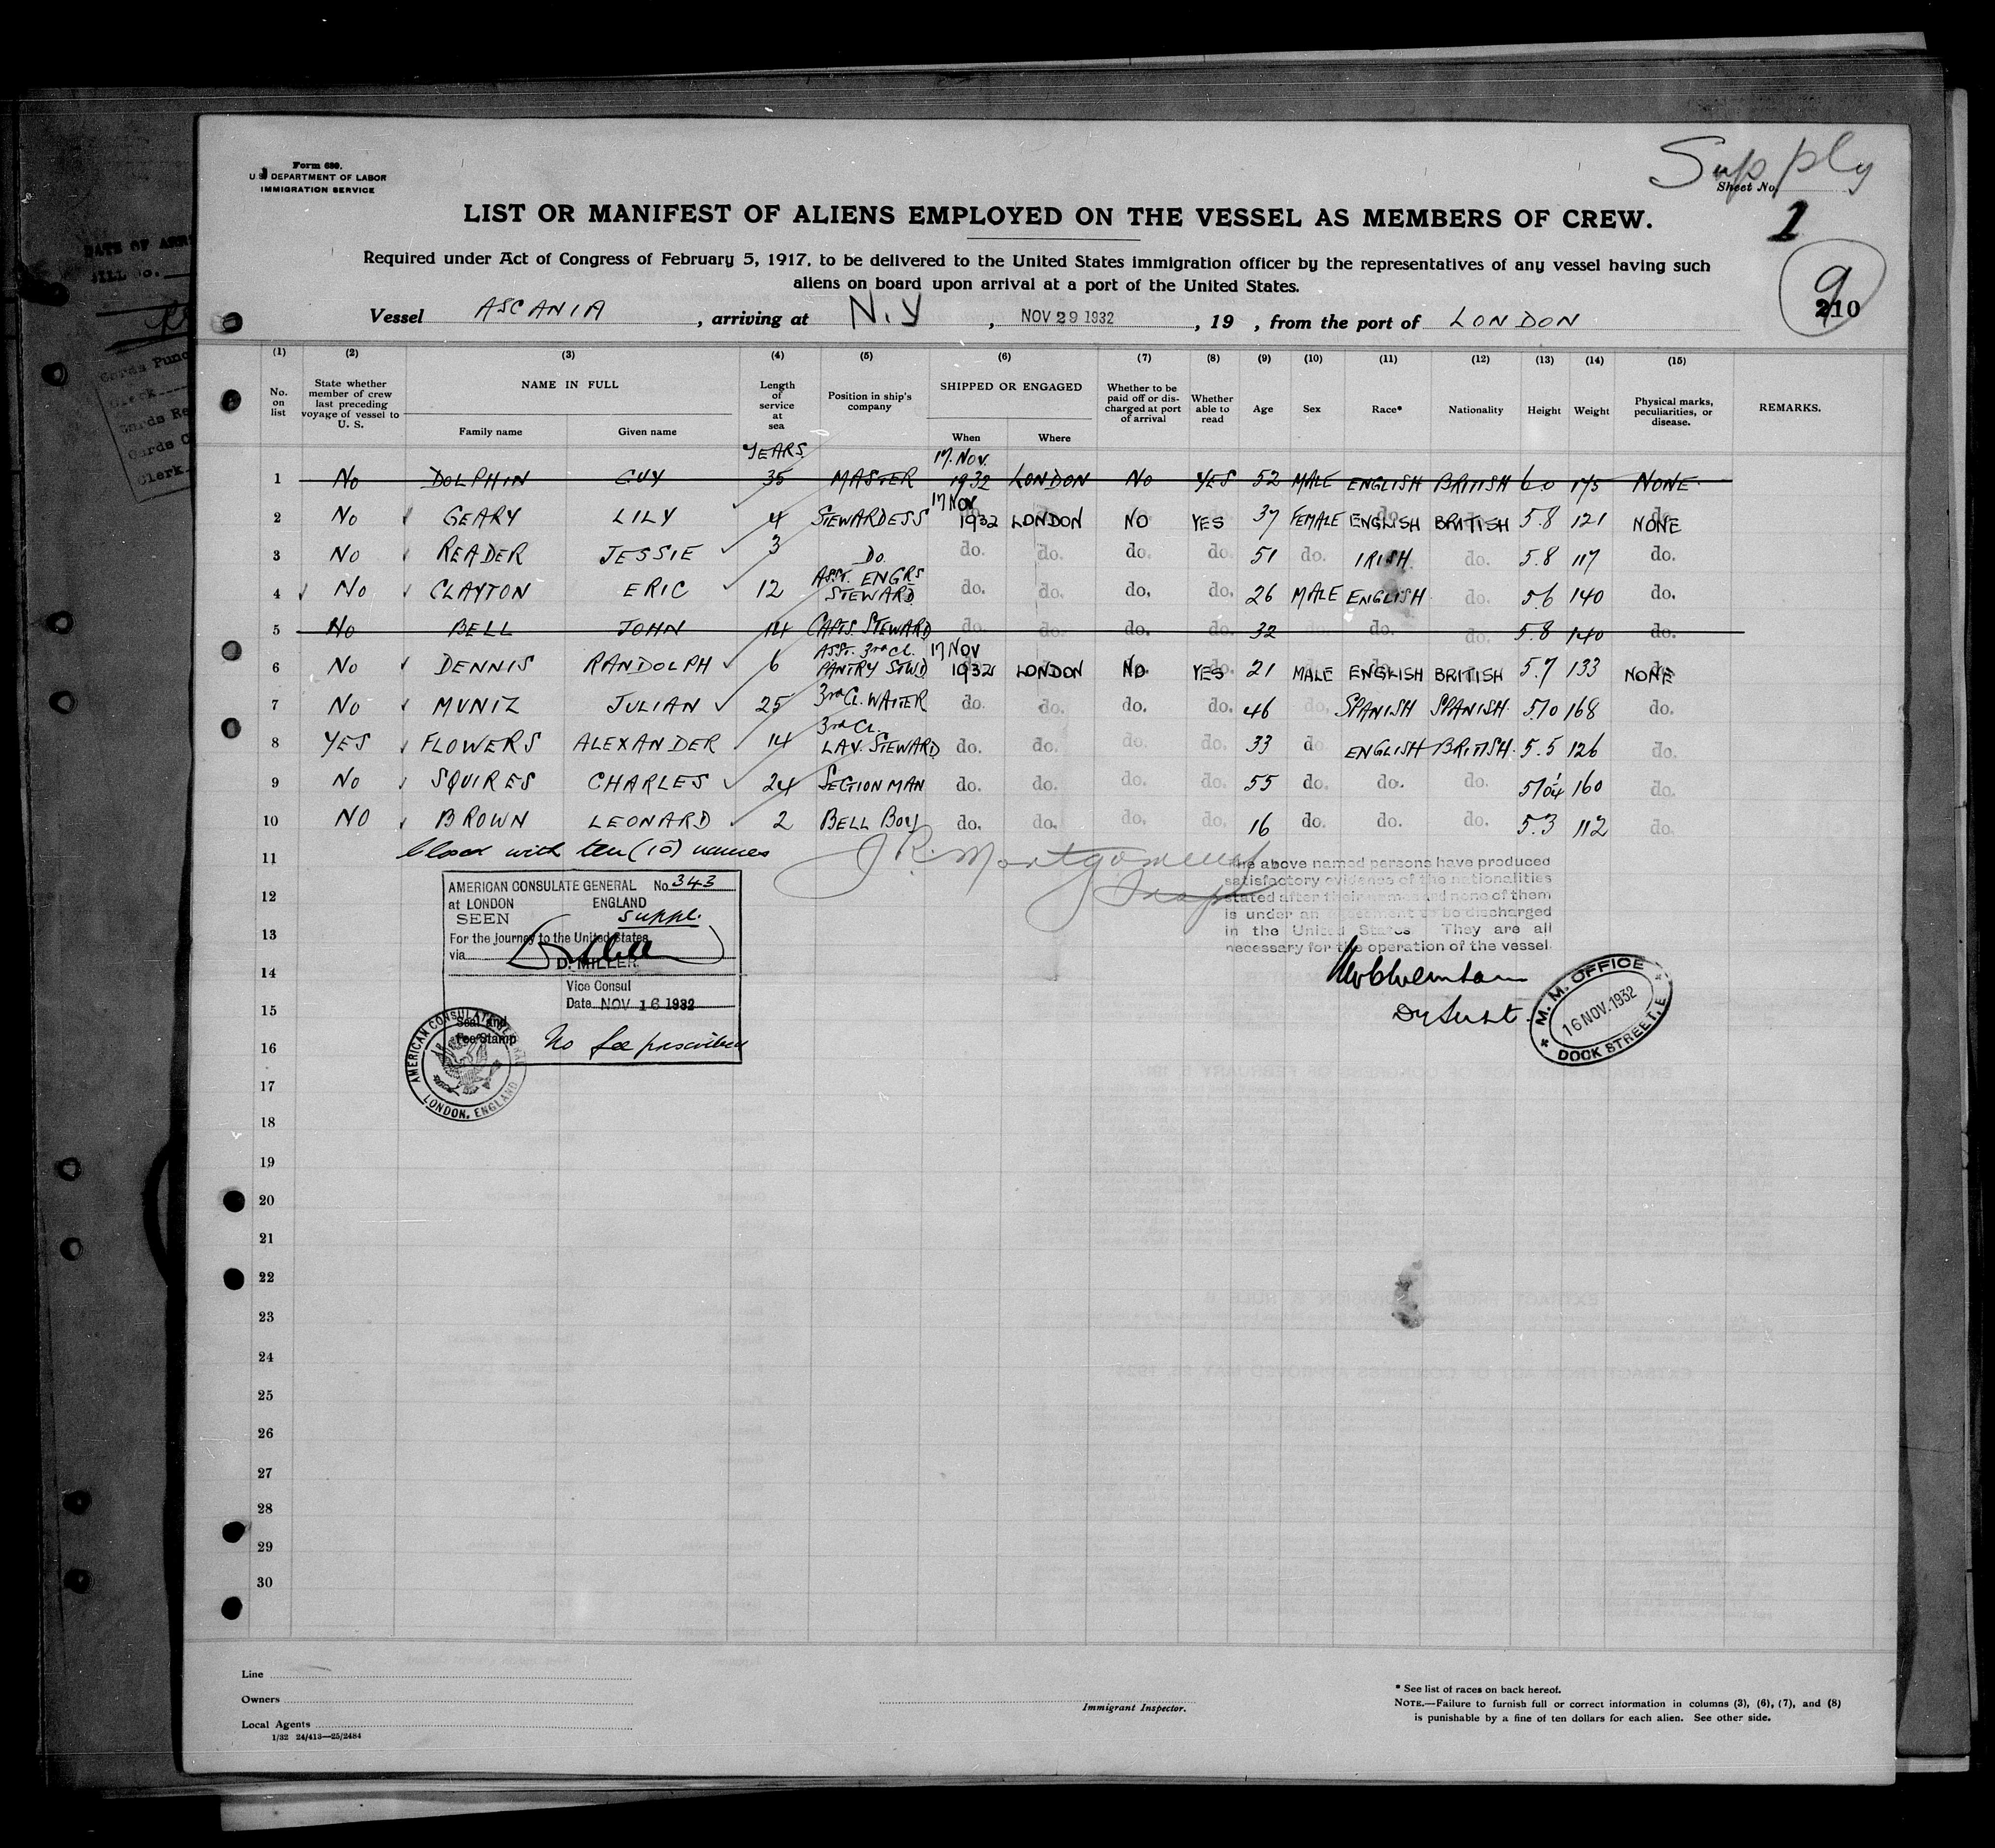 Form 680.
U.S. DEPARTMENT OF LABOR
IMMIGRATION SERVICE
Supply
Sheet No.
1
LIST OR MANIFEST OF ALIENS EMPLOYED ON THE VESSEL AS MEMBERS OF CREW.
Required under Act of Congress of February 5, 1917, to be delivered to the United States immigration officer by the representatives of any vessel having such
aliens on board upon arrival at a port of the United States.
9
210
Vessel ASCANIA, arriving at N.Y, NOV 29 1932, 19 , from the port of LONDON
(1) (2) (3) (4) (5) (6) (7) (8) (9) (10) (11) (12) (13) (14) (15)
No. on list
State whether member of crew last preceding voyage of vessel to U. S.
NAME IN FULL
Family name Given name
Length of service at sea
Position in ship's company
SHIPPED OR ENGAGED
When Where
Whether to be paid off or discharged at port of arrival
Whether able to read
Age Sex Race* Nationality Height Weight
Physical marks, peculiarities, or disease.
REMARKS.
YEARS
17. NOV.
1 No DOLPHIN GUY 35 MASTER 1932 LONDON No YES 52 MALE ENGLISH BRITISH 6.0 175 NONE
17 NOV
2 No GEARY LILY 4 STEWARDESS 1932 LONDON NO YES 37 FEMALE ENGLISH BRITISH 5.8 121 NONE
3 NO READER JESSIE 3 Do. do. do. do. do. 51 do. IRISH. do. 5.8 117 do.
4 No CLAYTON ERIC 12 ASST. ENGRS STEWARD do. do. do. do. 26 MALE ENGLISH do. 5.6 140 do.
5 No BELL JOHN 14 CAPTS. STEWARD do. do. do. do. 32 do. do. do. 5.8 140 do.
6 No DENNIS RANDOLPH 6 ASST. 3rd Cl. PANTRY STWD 17 NOV 1932 LONDON NO YES 21 MALE ENGLISH BRITISH 5.7 133 NONE
7 No MUNIZ JULIAN 25 3rd Cl. WAITER do. do. do. do. 46 do. SPANISH SPANISH 5.10 168 do.
8 YES FLOWERS ALEXANDER 14 3rd Cl. LAV. STEWARD do. do. do. do. 33 do ENGLISH BRITISH. 5.5 126 do.
9 No SQUIRES CHARLES 24 SECTION MAN do. do. do. do. 55 do. do. do. 5/10¼ 160 do.
10 NO BROWN LEONARD 2 BELL BOY do. do. do. do. 16 do. do. do. 5.3 112 do.
11
closed with ten (10) names
J R. Montgomery
The above named persons have produced
satisfactory evidence of the nationalities
stated after their names and none of them
is under an agreement to be discharged
in the United States. They are all
necessary for the operation of the vessel.
AMERICAN CONSULATE GENERAL No. 343
at LONDON ENGLAND
SEEN suppl.
For the journey to the United States
via
D. MILLER
Vice Consul
Date NOV 16 1932
Seal and
Fee Stamp
No fee prescribed
AMERICAN CONSULATE GENERAL
LONDON, ENGLAND
Dy Supt.
M. M. OFFICE
16 NOV. 1932
DOCK STREET, E.
12
13
14
15
16
17
18
19
20
21
22
23
24
25
26
27
28
29
30
Line
Owners
Local Agents
1/32 24/413—25/2484
Immigrant Inspector.
* See list of races on back hereof.
NOTE.—Failure to furnish full or correct information in columns (3), (6), (7), and (8)
is punishable by a fine of ten dollars for each alien. See other side.
DATE OF ARR
BILL No.
Cards Punc
Clerk
Cards Re
Cards C
Clerk